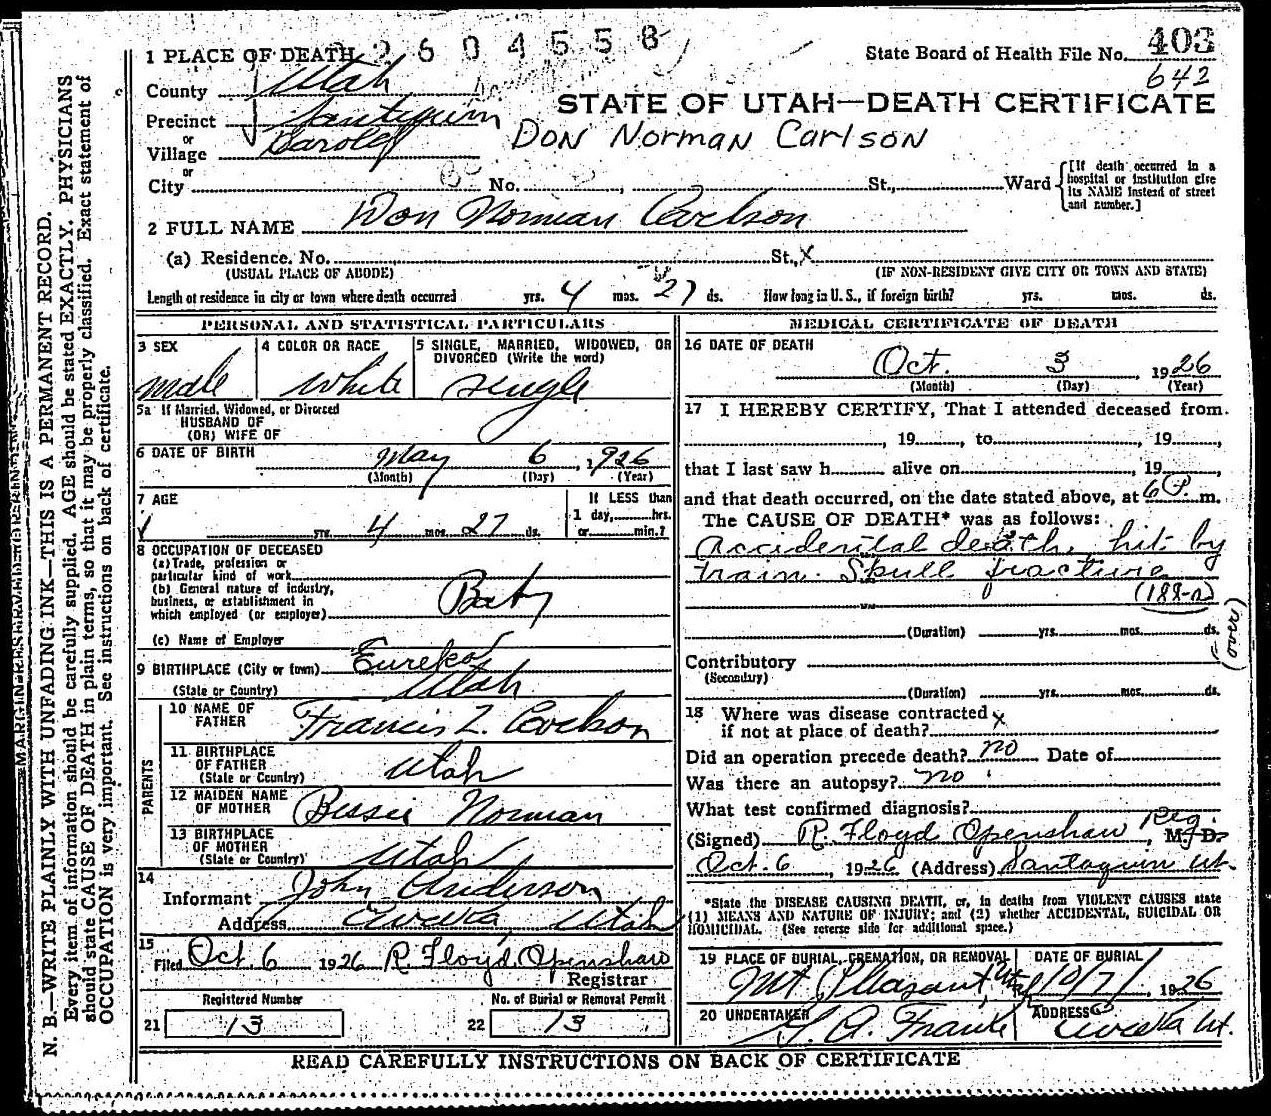 2604558
State Board of Health File No. 403
642
1 PLACE OF DEATH
County Utah
STATE OF UTAH—DEATH CERTIFICATE
Precinct Santaquin
Don Norman Carlson
or
Village
or
City No. , St., Ward
[If death occurred in a hospital or institution give its NAME instead of street and number.]
2 FULL NAME Don Norman Carlson
(a) Residence. No. St., X
(USUAL PLACE OF ABODE) (IF NON-RESIDENT GIVE CITY OR TOWN AND STATE)
Length of residence in city or town where death occurred yrs. 4 mos. 27 ds. How long in U. S., if foreign birth? yrs. mos. ds.
PERSONAL AND STATISTICAL PARTICULARS
3 SEX
male
4 COLOR OR RACE
White
5 SINGLE, MARRIED, WIDOWED, OR DIVORCED (Write the word)
single
5a If Married, Widowed, or Divorced
HUSBAND OF
(OR) WIFE OF
6 DATE OF BIRTH May 6, 1926
(Month) (Day) (Year)
7 AGE
yrs. 4 mos. 27 ds.
If LESS than
1 day, hrs.
or min.?
8 OCCUPATION OF DECEASED
(a) Trade, profession or
particular kind of work
(b) General nature of industry,
business, or establishment in
which employed (or employer)
Baby
(c) Name of Employer
9 BIRTHPLACE (City or town) Eureka
(State or Country) Utah
PARENTS
10 NAME OF FATHER Francis L. Carlson
11 BIRTHPLACE OF FATHER (State or Country) Utah
12 MAIDEN NAME OF MOTHER Bessie Norman
13 BIRTHPLACE OF MOTHER (State or Country) Utah
14
Informant John Anderson
Address Eureka Utah
15
Filed Oct. 6 1926 R. Floyd Openshaw
Registrar
Registered Number No. of Burial or Removal Permit
21 13 22 13
MEDICAL CERTIFICATE OF DEATH
16 DATE OF DEATH
Oct. 3 1926
(Month) (Day) (Year)
17 I HEREBY CERTIFY, That I attended deceased from
, 19 , to , 19 ,
that I last saw h alive on , 19 ,
and that death occurred, on the date stated above, at 6 P m.
The CAUSE OF DEATH* was as follows:
Accidental death, hit by
train. Skull fracture
(188-a)
(over)
(Duration) yrs. mos. ds.
Contributory
(Secondary)
(Duration) yrs. mos. ds.
18 Where was disease contracted
if not at place of death? x
Did an operation precede death? no Date of
Was there an autopsy? no
What test confirmed diagnosis?
(Signed) R. Floyd Openshaw Reg., M. D.
Oct. 6, 1926 (Address) Santaquin Ut.
*State the DISEASE CAUSING DEATH, or, in deaths from VIOLENT CAUSES state
(1) MEANS AND NATURE OF INJURY; and (2) whether ACCIDENTAL, SUICIDAL OR
HOMICIDAL. (See reverse side for additional space.)
19 PLACE OF BURIAL, CREMATION, OR REMOVAL
Mt Pleasant Utah
DATE OF BURIAL
10/7/ 1926
20 UNDERTAKER
ADDRESS
Eureka Ut.
READ CAREFULLY INSTRUCTIONS ON BACK OF CERTIFICATE
MARGIN RESERVED FOR BINDING
N. B.—WRITE PLAINLY WITH UNFADING INK—THIS IS A PERMANENT RECORD.
Every item of information should be carefully supplied. AGE should be stated EXACTLY. PHYSICIANS
should state CAUSE OF DEATH in plain terms, so that it may be properly classified. Exact statement of
OCCUPATION is very important. See instructions on back of certificate.